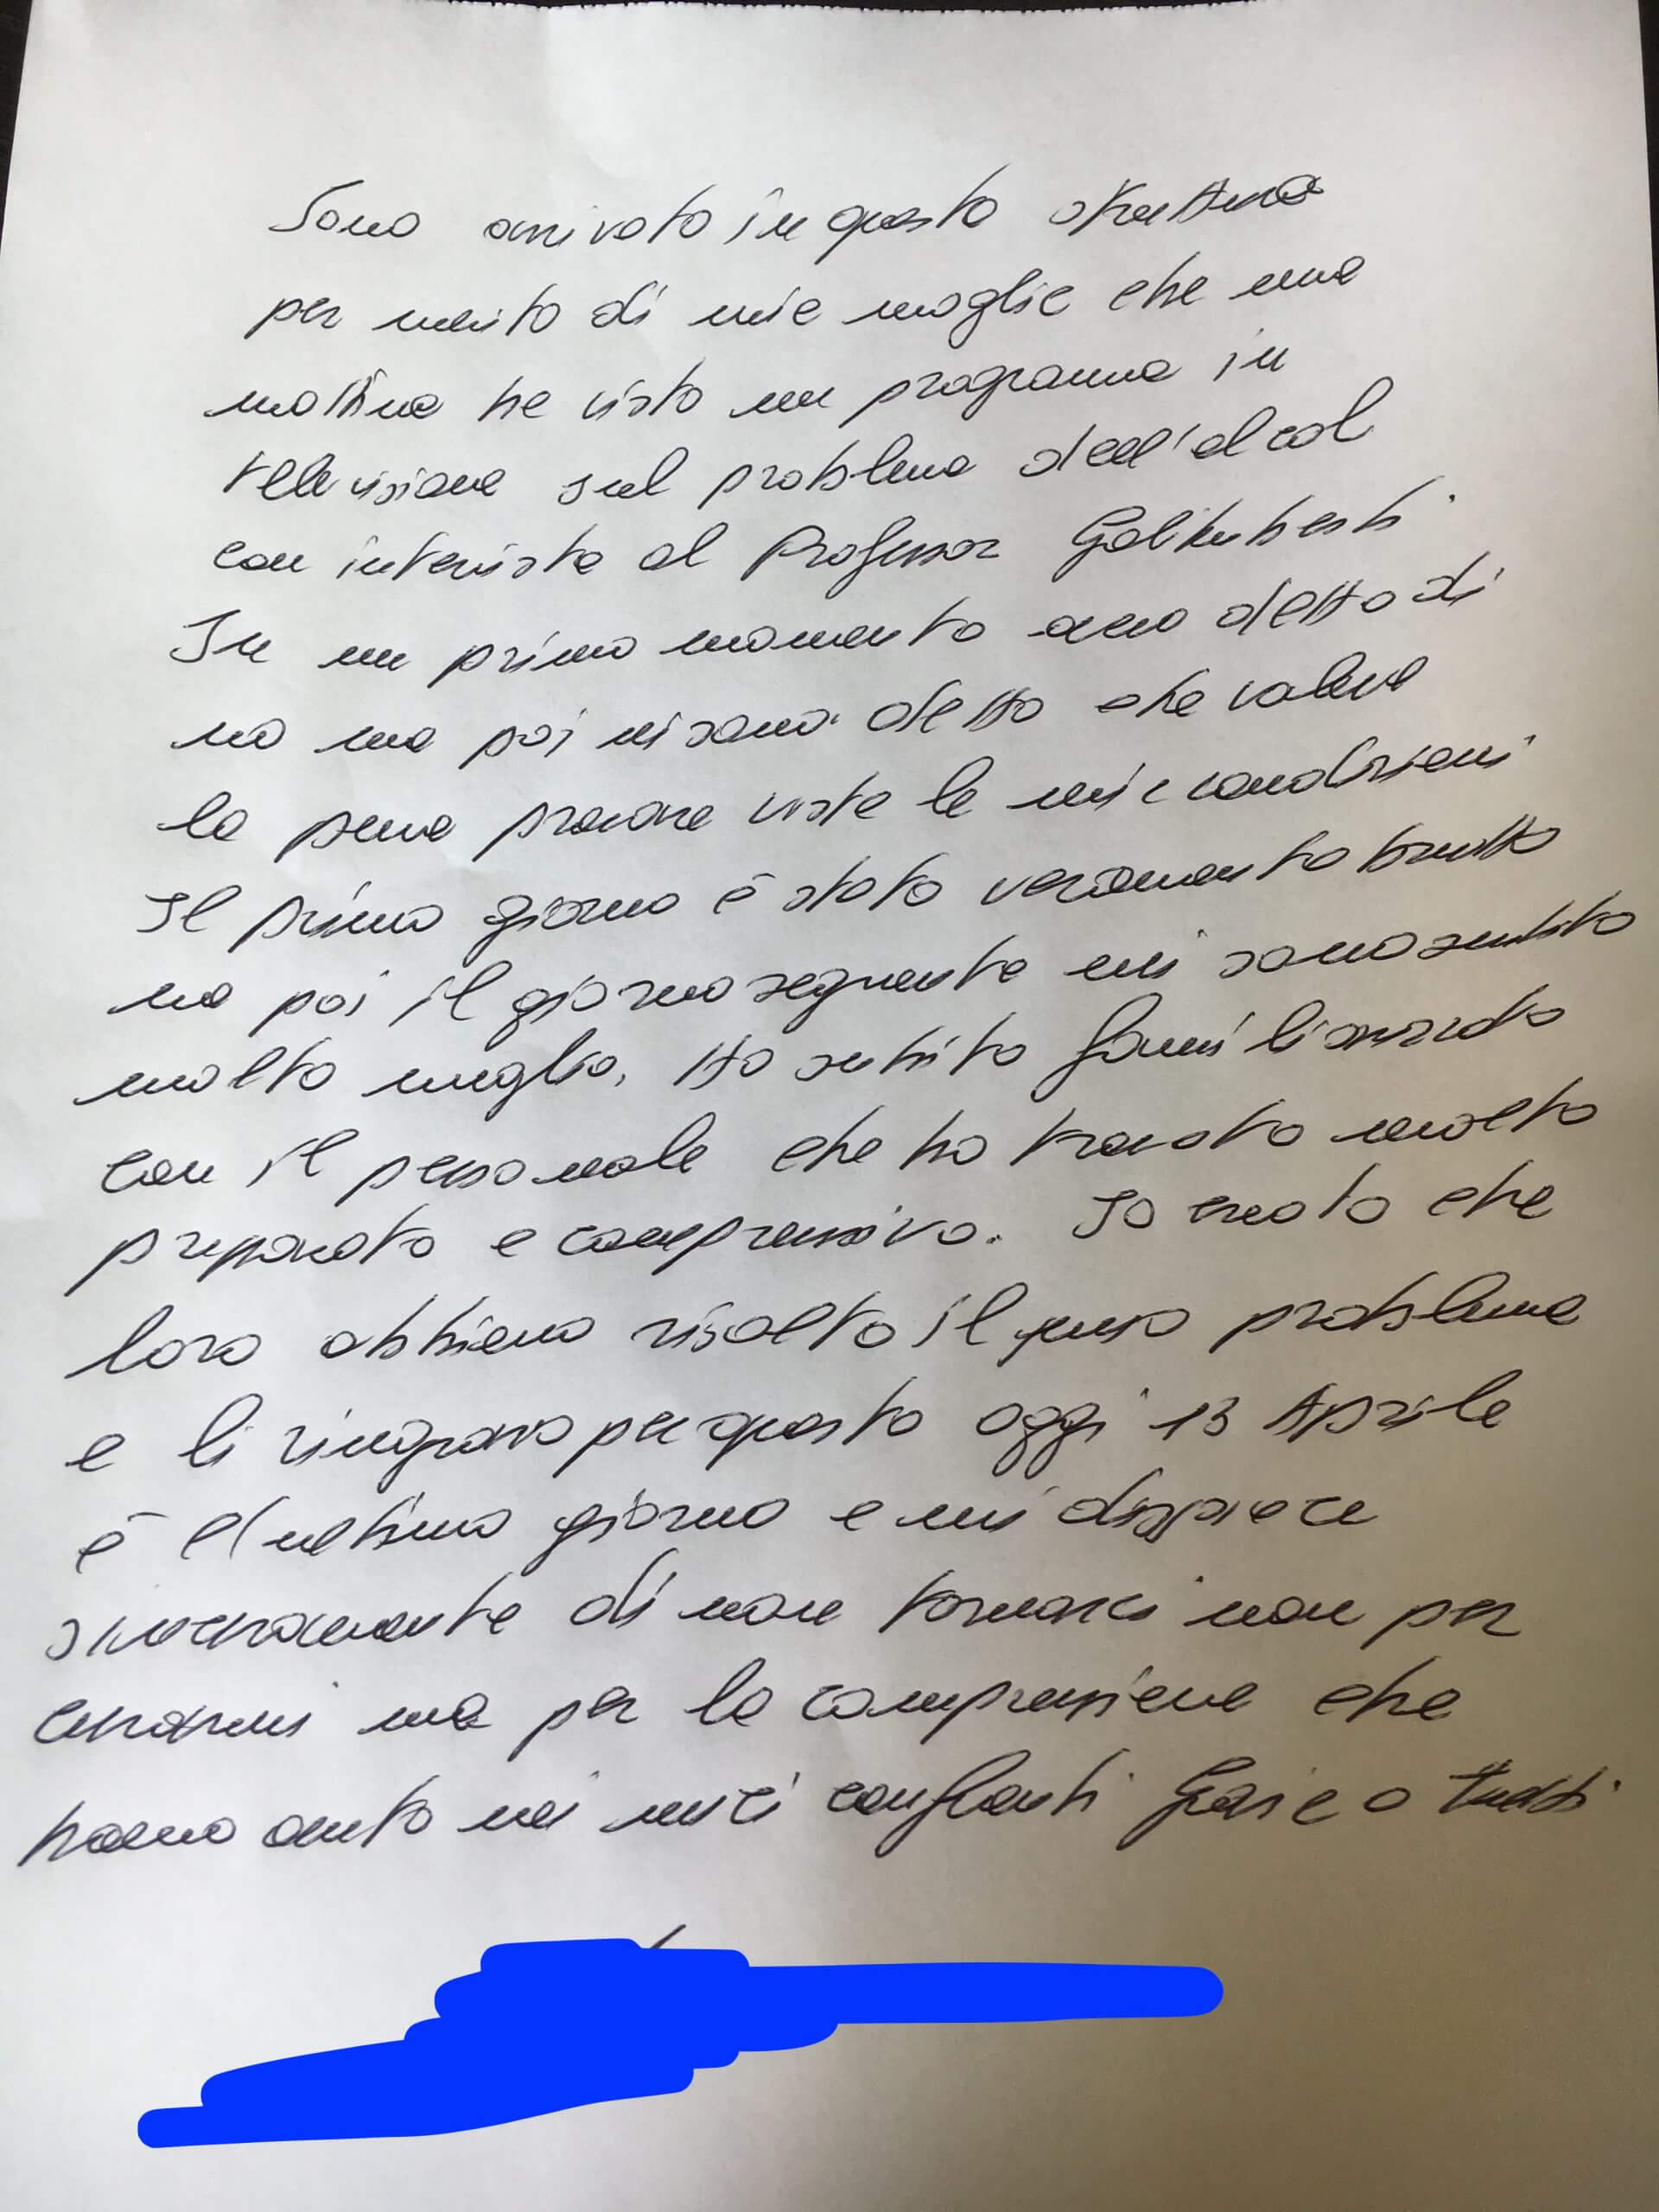 Sono arrivato in questa struttura
per merito di mia moglie che una
mattina ha visto un programma in
televisione sul problema dell'alcol
con intervista al Professor Gallimberti.
In un primo momento avevo detto di
no ma poi mi sono detto che valeva
la pena provare viste le mie condizioni
Il primo giorno è stato veramente brutto
ma poi il giorno seguente mi sono sentito
molto meglio. Ho subito familiarizzato
con il personale che ho trovato molto
preparato e comprensivo. Io credo che
loro abbiano risolto il mio problema
e li ringrazio per questo oggi 13 Aprile
è l'ultimo giorno e mi dispiace
sinceramente di non tornarci non per
curarmi ma per la comprensione che
hanno avuto nei miei confronti Grazie a tutti